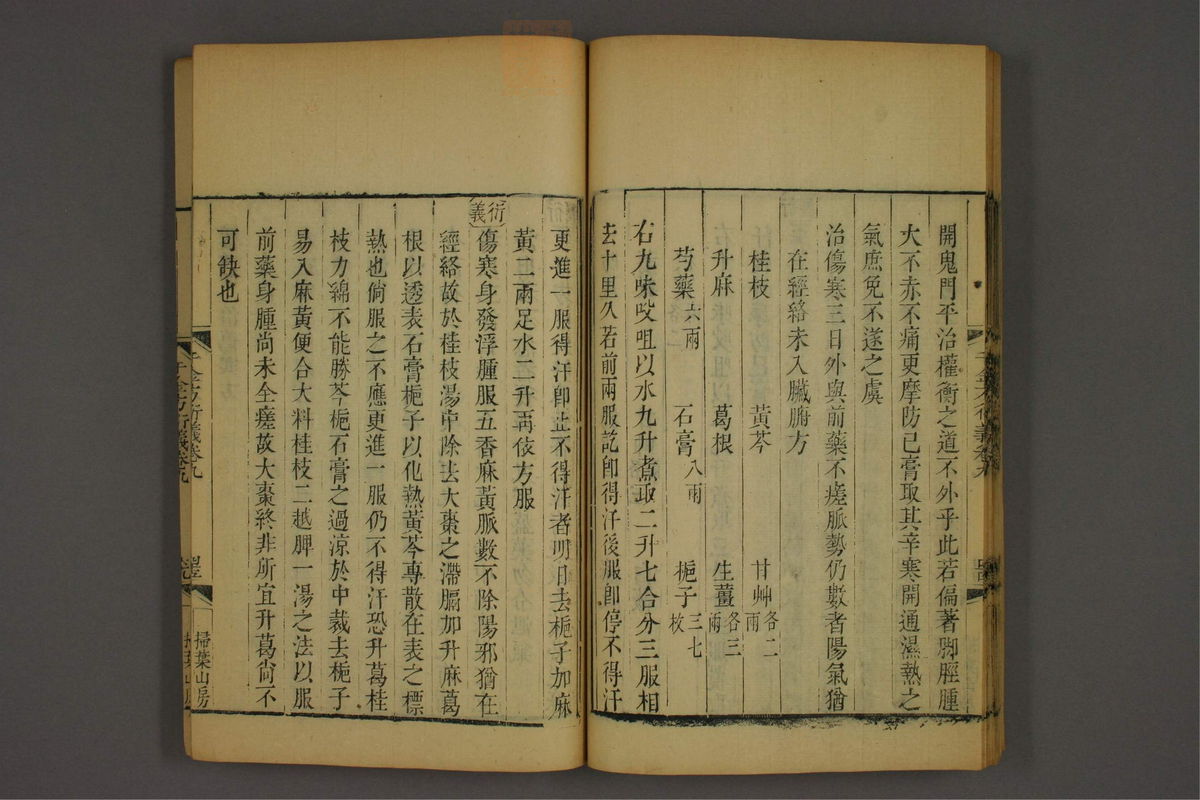 開鬼門平治權衡之道不外乎此若偏著脚脛腫
大不赤不痛更摩防已膏取其辛寒開通濕熱之
氣庶免不遂之虞
治傷寒三日外與前藥不瘥脈勢仍數者陽氣猶
在經絡未入臟腑方
桂枝 黃芩 甘艸各二兩
升麻 葛根 生薑各三兩
芍藥六兩 石膏八兩 梔子三七枚
右九味㕮咀以水九升煮取二升七合分三服相
去十里久若前兩服訖即得汗後服即停不得汗
更進一服得汗即止不得汗者明日去梔子加麻
黃二兩足水二升再依方服
衍義
傷寒身發浮腫服五香麻黃脈數不除陽邪猶在
經絡故於桂枝湯中除去大棗之滯膈加升麻葛
根以透表石膏梔子以化熱黃芩專散在表之標
熱也倘服之不應更進一服仍不得汗恐升葛桂
枝力綿不能勝芩梔石膏之過涼於中裁去梔子
易入麻黃便合大料桂枝二越脾一湯之法以服
前藥身腫尚未全瘥故大棗終非所宜升葛尚不
可缺也
千金方衍義卷九
掃葉山房